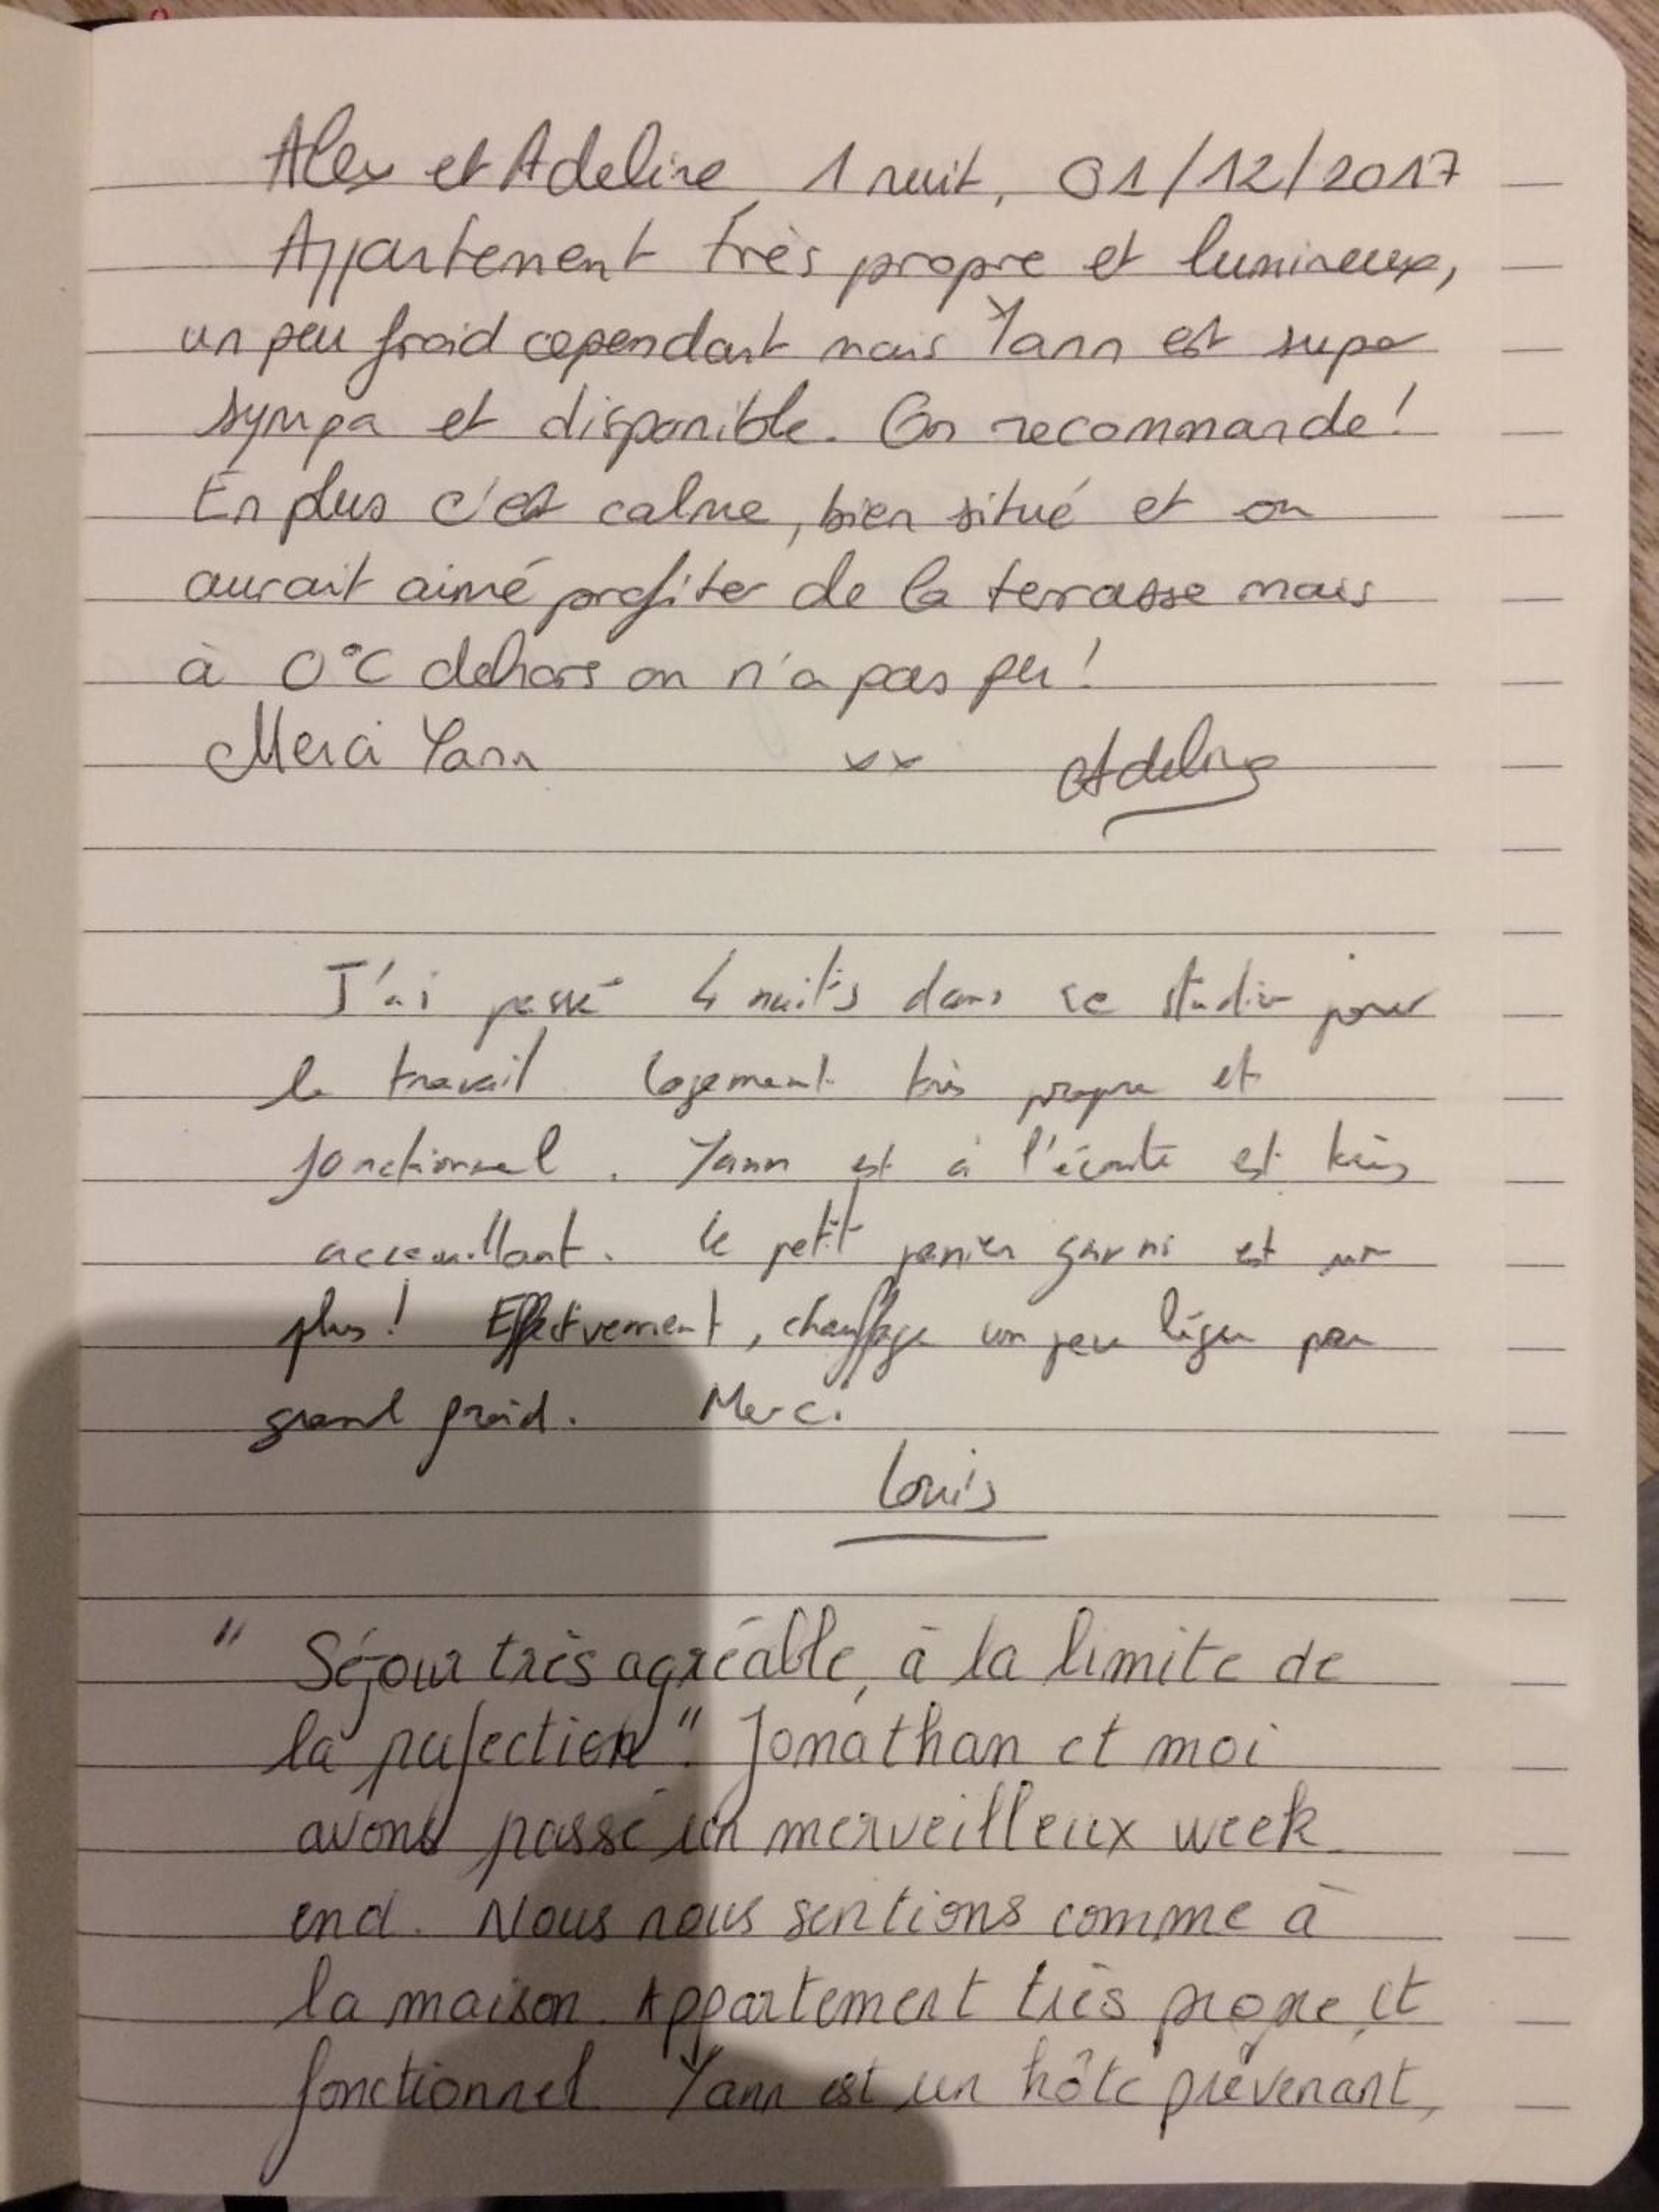 Alex et Adeline, 1 nuit, 01/12/2017
Appartement très propre et lumineux,
un peu froid cependant mais Yann est super
sympa et disponible. On recommande !
En plus c'est calme, bien situé et on
aurait aimé profiter de la terrasse mais
à 0°C dehors on n'a pas pu !
Merci Yann xx Adeline
J'ai passé 4 nuits dans ce studio pour
le travail logement très propre et
fonctionnel. Yann est à l'écoute est très
acceuillant. Le petit panier garni est un
plus ! Effectivement, chauffage un peu léger par
grand froid. Merci
Louis
" Séjour très agréable, à la limite de
la perfection". Jonathan et moi
avons passé un merveilleux week
end. Nous nous sentions comme à
la maison. Appartement très propre et
fonctionnel Yann est un hôte prévenant,